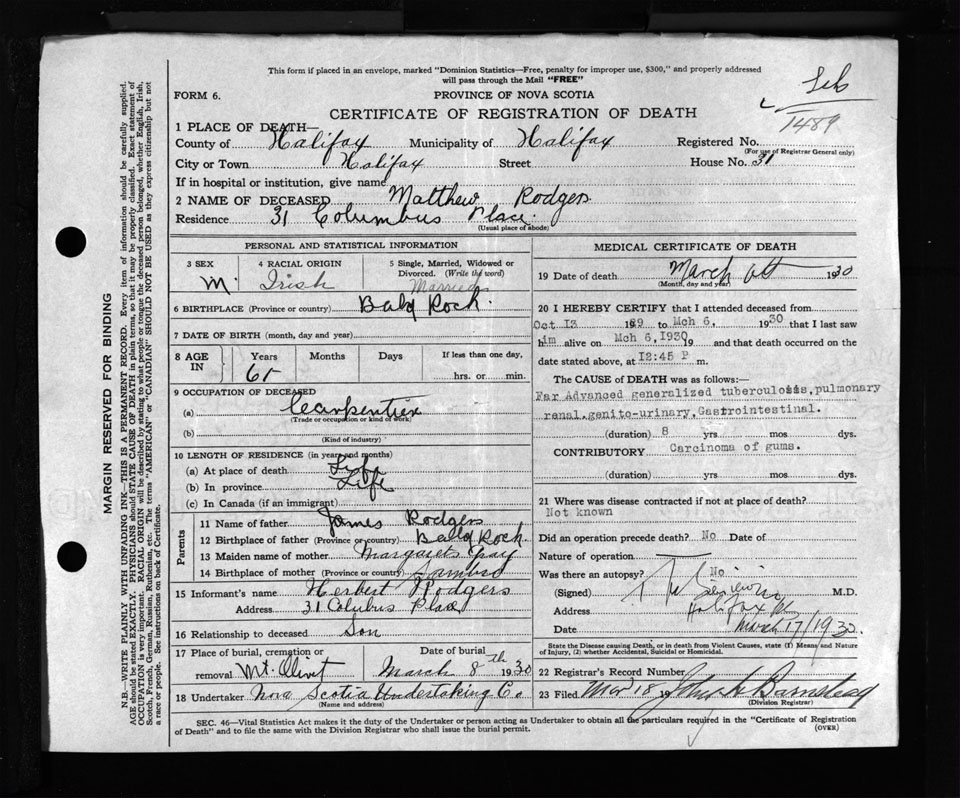 This form if placed in an envelope, marked "Dominion Statistics—Free, penalty for improper use, $300," and properly addressed
will pass through the Mail "FREE"
FORM 6.
PROVINCE OF NOVA SCOTIA
CERTIFICATE OF REGISTRATION OF DEATH
1489
1 PLACE OF DEATH—
County of Halifax Municipality of Halifax Registered No.
(For use of Registrar General only)
City or Town Halifax Street House No. 31
If in hospital or institution, give name
2 NAME OF DECEASED Matthew Rodgers
Residence 31 Columbus Place.
(Usual place of abode)
PERSONAL AND STATISTICAL INFORMATION
3 SEX 4 RACIAL ORIGIN 5 Single, Married, Widowed or Divorced. (Write the word)
M. Irish Married
6 BIRTHPLACE (Province or country) Bald Rock.
7 DATE OF BIRTH (month, day and year)
8 AGE IN Years Months Days If less than one day,
hrs. or min.
9 OCCUPATION OF DECEASED
(a) Carpentier
(Trade or occupation or kind of work)
(b)
(Kind of industry)
10 LENGTH OF RESIDENCE (in years and months)
(a) At place of death Life
(b) In province Life
(c) In Canada (if an immigrant)
Parents
11 Name of father James Rodgers
12 Birthplace of father (Province or country) Bald Rock.
13 Maiden name of mother Margaret Gray
14 Birthplace of mother (Province or country) Sambro
15 Informant's name Herbert Rodgers
Address 31 Colubus Place
16 Relationship to deceased Son
17 Place of burial, cremation or removal Mt. Olivet Date of burial March 8th 1930
18 Undertaker Nova Scotia Undertaking Co
(Name and address)
MEDICAL CERTIFICATE OF DEATH
19 Date of death March 6th 1930
(Month, day and year)
20 I HEREBY CERTIFY that I attended deceased from
Oct 13 1929 to Mch 6, 1930 that I last saw
him alive on Mch 6, 1930 19 and that death occurred on the
date stated above, at 12:45 P m.
The CAUSE OF DEATH was as follows:—
Far Advanced generalized tuberculosis, pulmonary
renal, genito-urinary, Gastrointestinal.
(duration) 8 yrs mos dys.
CONTRIBUTORY Carcinoma of gums.
(duration) yrs. mos. dys.
21 Where was disease contracted if not at place of death?
Not known
Did an operation precede death? No Date of
Nature of operation
Was there an autopsy? No
(Signed) M.D.
Address Halifax
Date March 17/1930
State the Disease causing Death, or in death from Violent Causes, state (1) Means and Nature
of Injury, (2) whether Accidental, Suicidal or Homicidal.
22 Registrar's Record Number
23 Filed Mar 18 19 John A Barnstead
(Division Registrar)
SEC. 46—Vital Statistics Act makes it the duty of the Undertaker or person acting as Undertaker to obtain all the particulars required in the "Certificate of Registration
of Death" and to file the same with the Division Registrar who shall issue the burial permit.
(OVER)
MARGIN RESERVED FOR BINDING
N.B.—WRITE PLAINLY WITH UNFADING INK—THIS IS A PERMANENT RECORD. Every item of information should be carefully supplied.
AGE should be stated EXACTLY. PHYSICIANS should STATE CAUSE OF DEATH in plain terms, so that it may be properly classified. Exact statement of
OCCUPATION is very important. RACIAL ORIGIN will be described by stating to what people or tongue the deceased person belonged, whether English, Irish,
Scotch, French, German, Russian, Ruthenian, etc. The terms "AMERICAN" or "CANADIAN" SHOULD NOT BE USED as they express citizenship but not
a race or people. See instructions on back of Certificate.